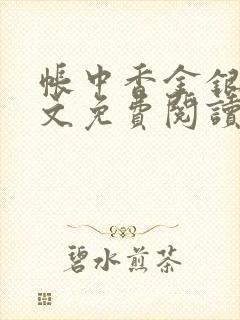 帳中香金銀
文免費閱讀
碧水煎茶